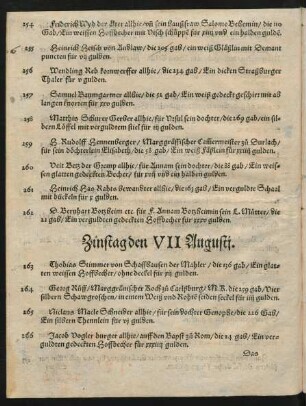 254 Friderich Wyd der elter allhie, vñ sein haußfraw Salome Bestemin, die no
Gab, Ein weissen Hoffbecher mit Visch schüppē für xiiij vnd ein halben guldē.
255 Heinrich Hersch von Anßlaw, die 305 gab, ein weiß Gläßlin mit Demant
puncten für vij gulden.
256 Wendling Reb kornwerffer allhie, die 134 gab, Ein dicken Straßburger
Thaler für v gulden.
257 Samuel Baumgartner allhie, die 32 gab, Ein weiß gedeckt geschirr mit ab
langen knorren für xxv gulden.
258 Matthis Schürer Gerber allhie, für Vrsul sein dochter, die 269 gab, ein sil-
bern Löffel mit vergultem stiel für iij gulden.
259 H. Rudolff Hannenberger, Marggräffischer Collectormeister zů Surlach,
für sein döchterlein Elisabeth, die 38 gab, Ein weiß Fäßlein für xxiij gulden.
260 Veit Botz der Gremp allhie, für Annam sein dochter, die 88 gab, Ein weis-
sen glatten gedeckten Becher, für xvij vnd ein halben gulden.
261 Heinrich Han Rahts verwanter allhie, die 163 gab, Ein vergulde Schaal
mit bückeln für x gulden.
262 D. Bernhart Botzheim etc. für F. Annam Botzheimin sein L. Mütter, die
22 gab, Ein vergulten gedeckten Hoffbecher für xxxv gulden.
Zinstag den VII Augusti.
263 Thobias Stimmer von Schaffhausen der Mahler, die 196 gab, Ein glat-
ten weissen Hoffbecher, ohne deckel für xij gulden.
264 Georg Rüß, Marggräuischer Koch zů Carlspurg, M.R. die 239 gab, Vier
silbern Schawgroschen, in einem Weiß vnd Rohten seiden seckel für xij gulden.
265 Niclaus Macle Schneider allhie, für sein Dochter Genophe, die 226 gab, Ein
silbern Thennlein für vj gulden.
266 Jacob Vogler burger allhie, auff den Bapst zů Rom, die 24 gab, Ein ver-
gulten gedeckten Hoffbecher für xxxiiij gulden.
Das